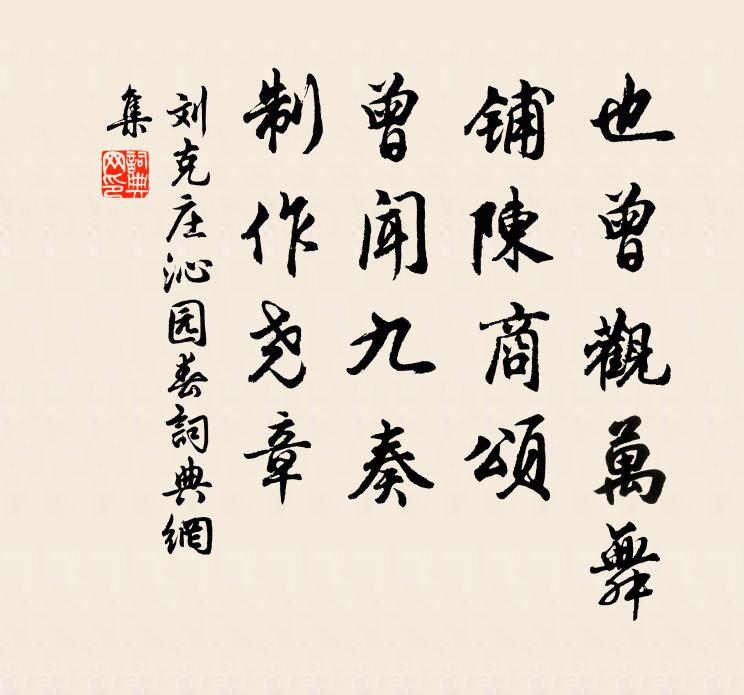 也曾觀萬舞
铺陳商頌
曾闻九奏
制作尧章
刘克庄沁园春詞典網
集
詞典网印